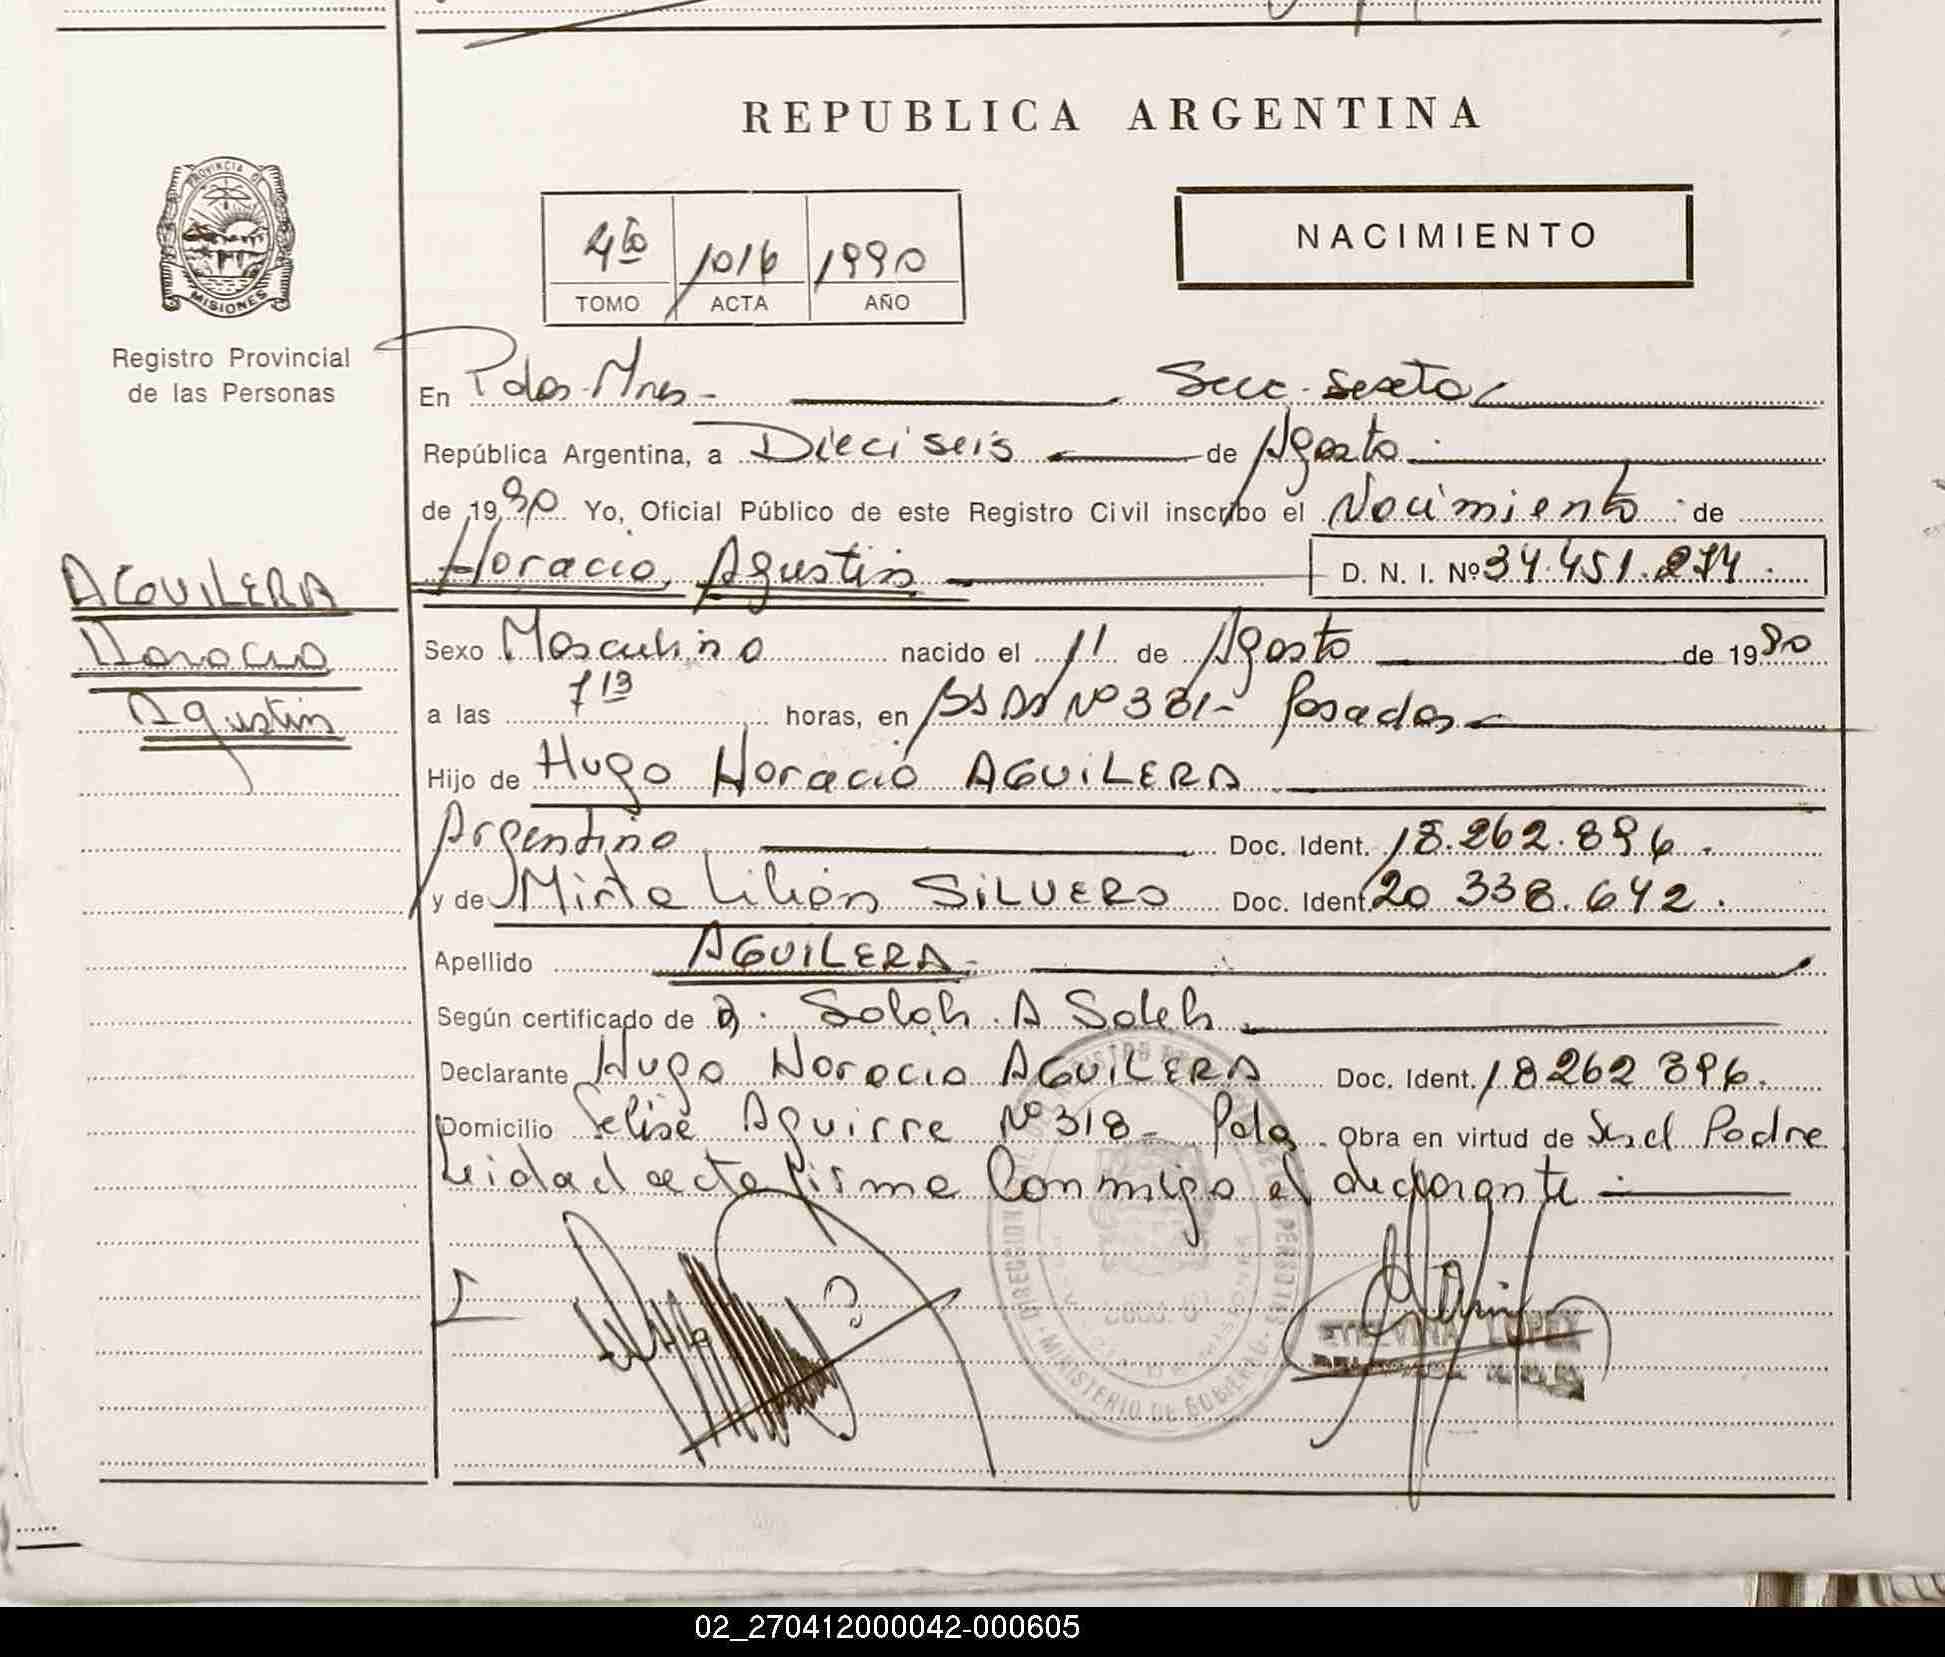 REPUBLICA ARGENTINA
PROVINCIA DE
MISIONES
Registro Provincial
de las Personas
4to 1016 1990
TOMO ACTA AÑO
NACIMIENTO
En Pdas. Mnes - Secc. sexta
República Argentina, a Dieciseis de Agosto
de 1990 Yo, Oficial Público de este Registro Civil inscribo el Nacimiento de
Horacio Agustin D. N. I. Nº 34.451.274
AGUILERA
Horacio
Agustin
Sexo Masculino nacido el 11 de Agosto de 1990
a las 7 13 horas, en Bs As Nº 381- Posadas
Hijo de Hugo Horacio AGUILERA
Argentino Doc. Ident. 18.262.896.
y de Mirta Lilian SILVERO Doc. Ident. 20 338.642.
Apellido AGUILERA
Según certificado de D. Salah. A Saleh
Declarante Hugo Horacio AGUILERA Doc. Ident. 18262 896.
Domicilio Felix Aguirre Nº 318- Pdas Obra en virtud de Ser el Padre
Leida el acta firma conmigo el declarante
MINISTERIO DE GOBIERNO
LOPEZ
02_270412000042-000605